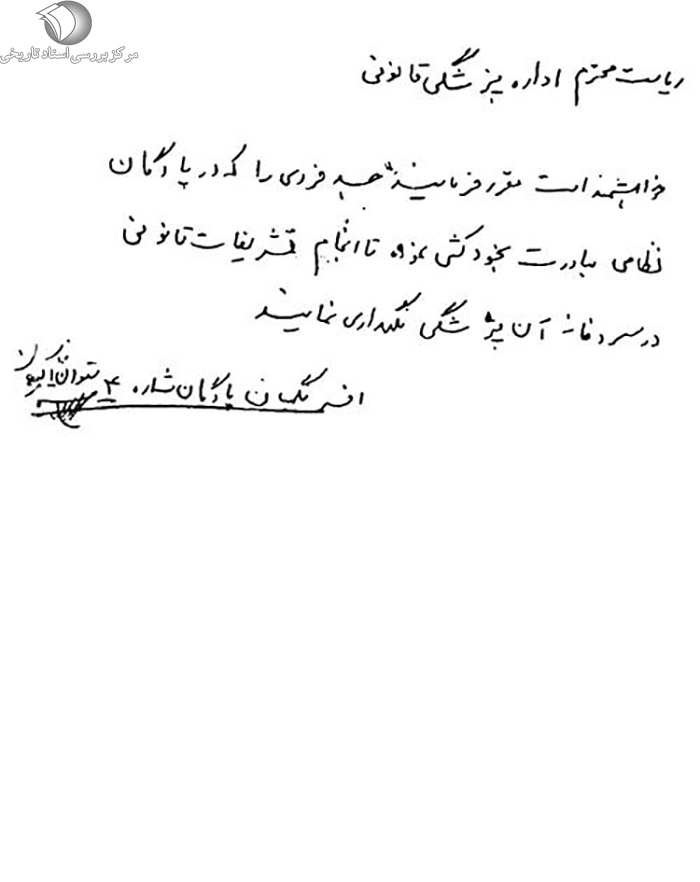 مرکز بررسی اسناد تاریخی
ریاست محترم اداره پزشگی قانونی
خواهشمند است مقرر فرمایند جسد فردی را که در پادگان
نظامی مبادرت بخودکشی نموده تا انجام تشریفات قانونی
در سردخانه آن پزشگی نگهداری نمایند
افسر نگهبان پادگان شماره ۴ ستوان